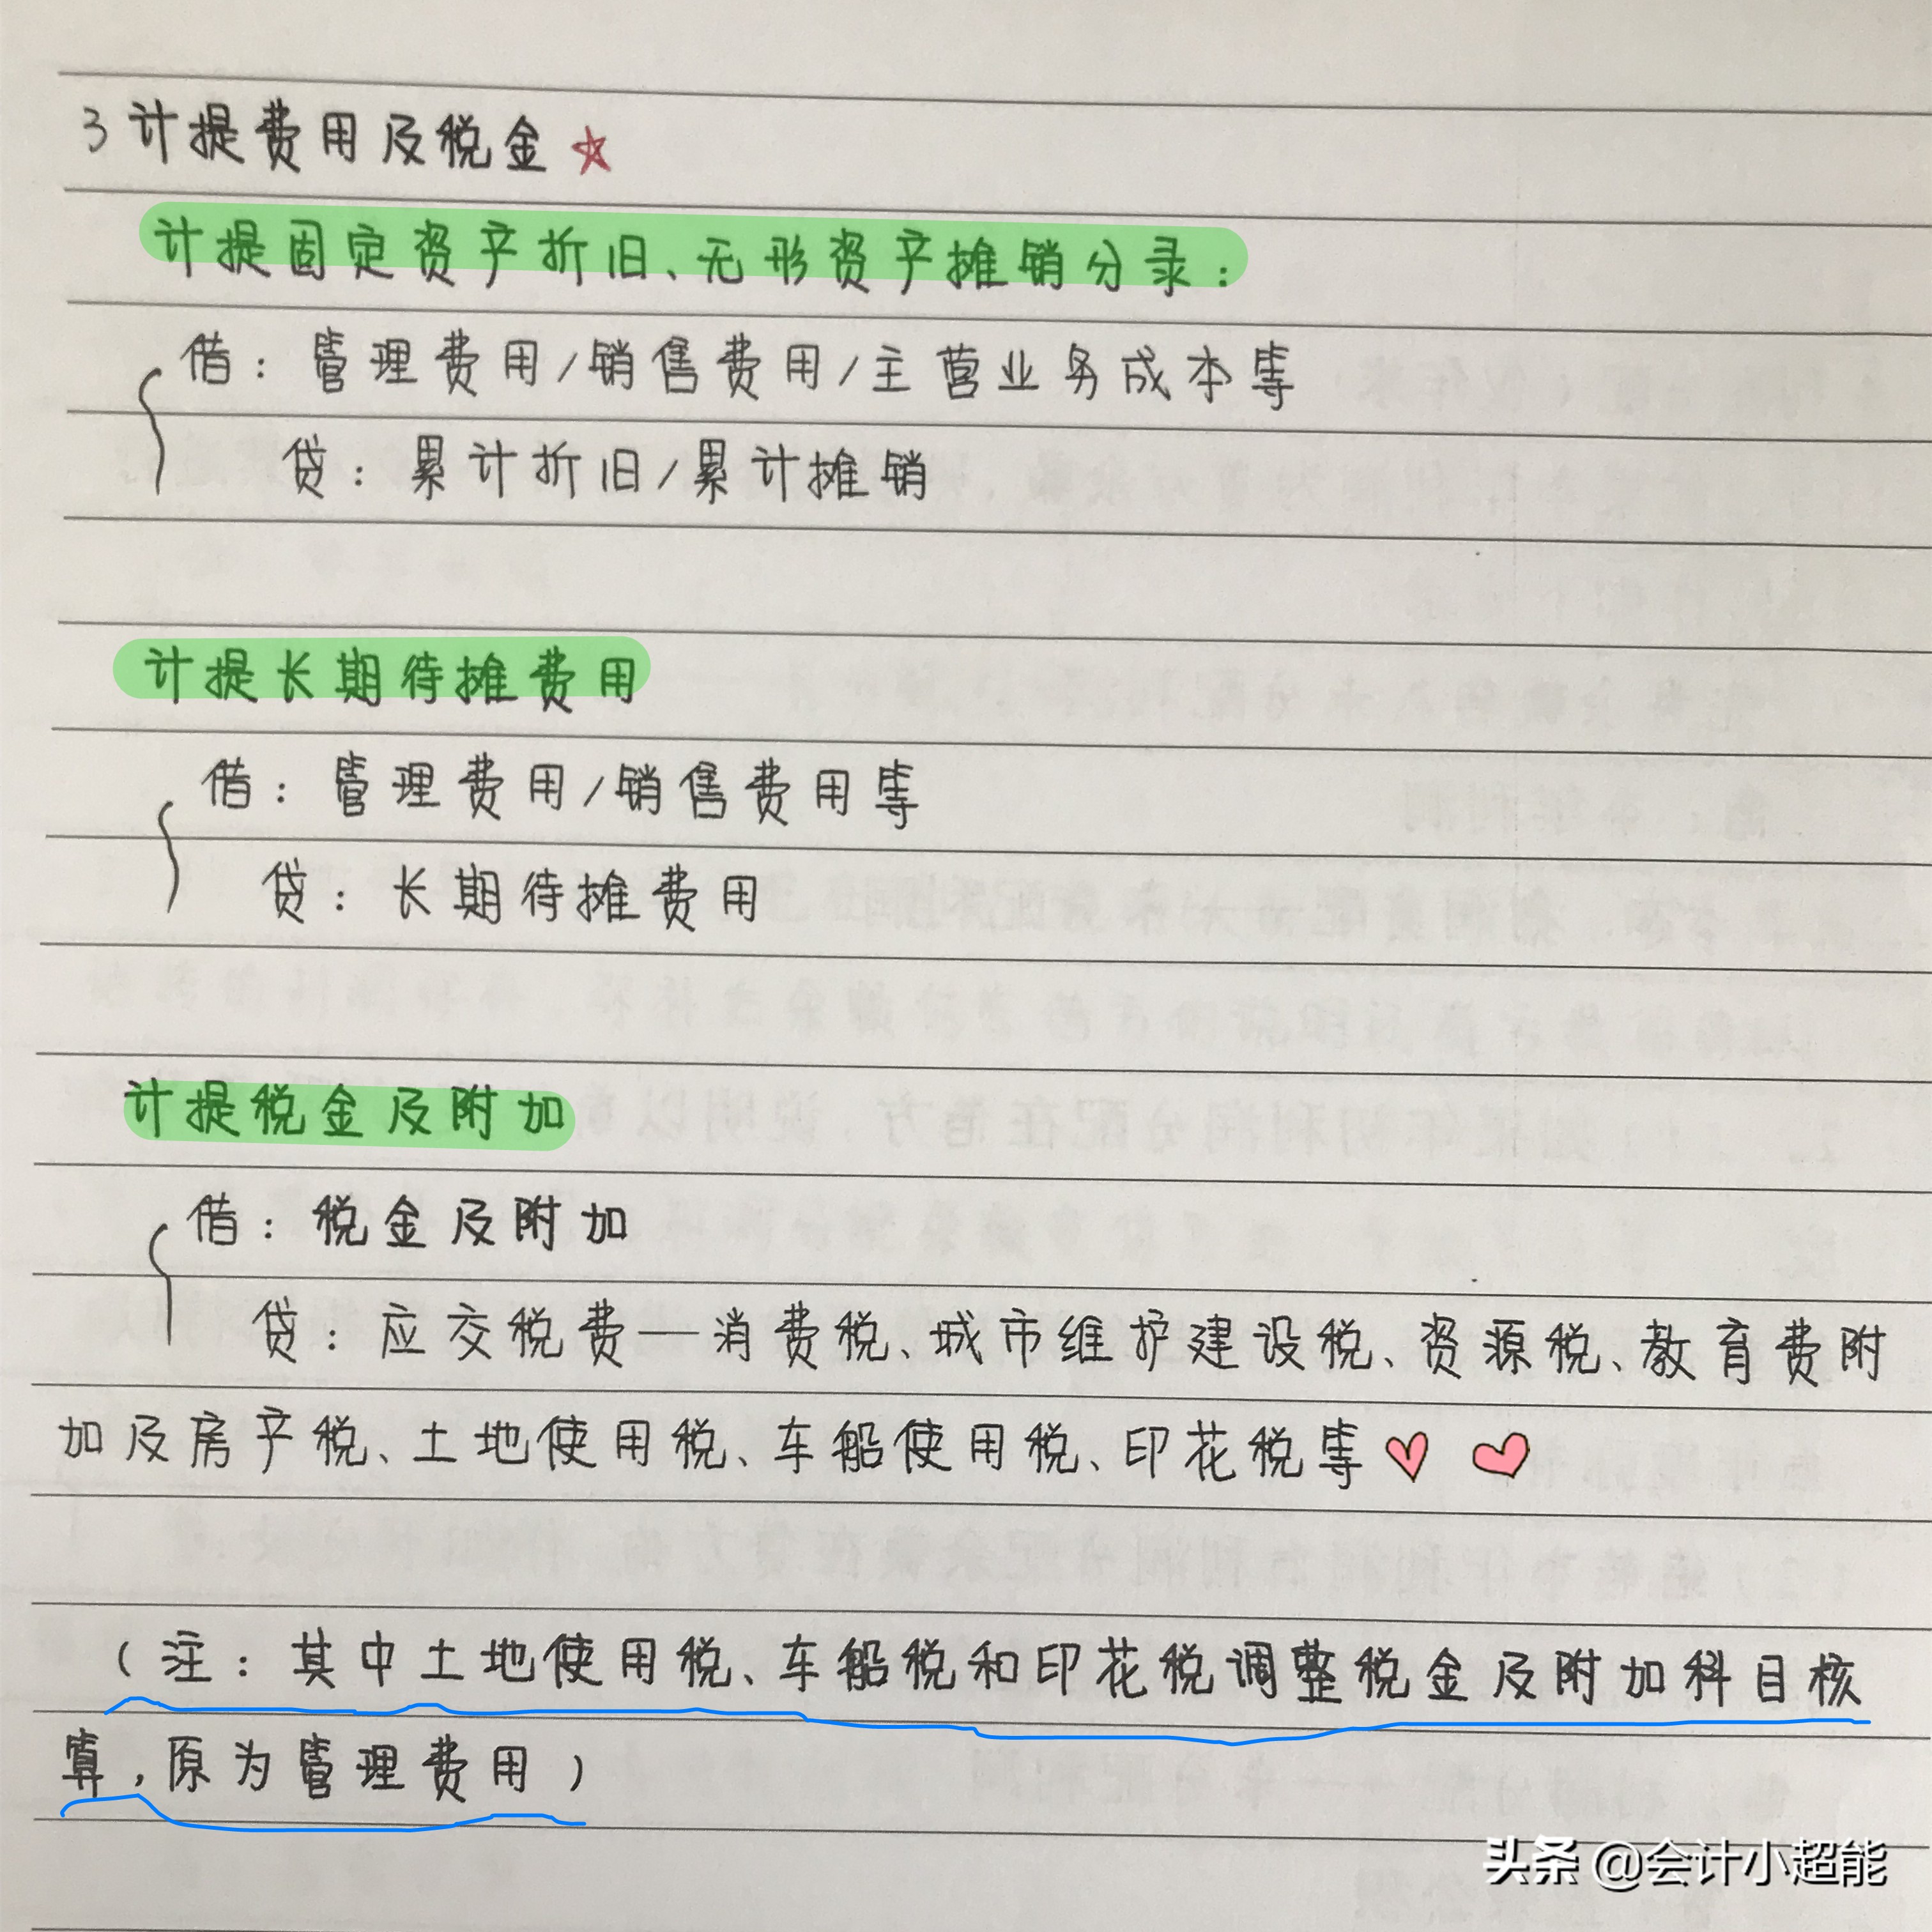 3 计提费用及税金
计提固定资产折旧、无形资产摊销分录：
借：管理费用/销售费用/主营业务成本等
贷：累计折旧/累计摊销
计提长期待摊费用
借：管理费用/销售费用等
贷：长期待摊费用
计提税金及附加
借：税金及附加
贷：应交税费—消费税、城市维护建设税、资源税、教育费附
加及房产税、土地使用税、车船使用税、印花税等
（注：其中土地使用税、车船税和印花税调整税金及附加科目核
算，原为管理费用）
头条 @会计小超能